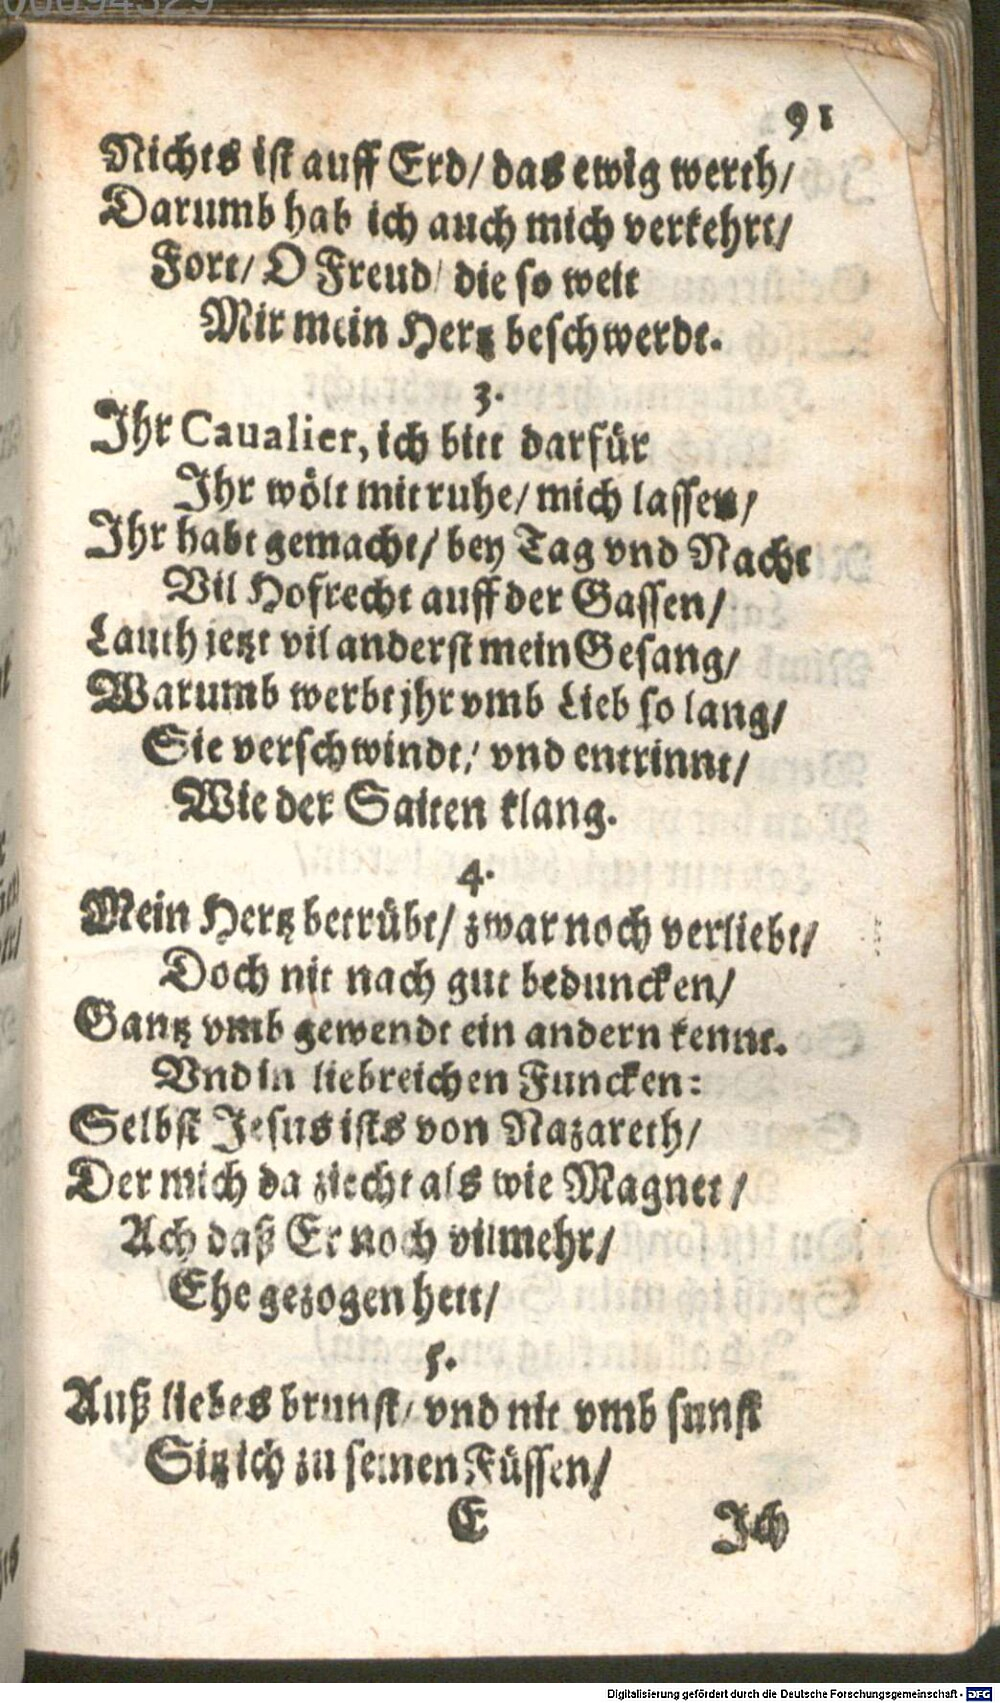 91
Nichts ist auff Erd/ das ewig werth/
Darumb hab ich auch mich verkehrt/
Fort/ O Freud/ die so weit
Mir mein Hertz beschwerdt.
3.
Ihr Caualier, ich bitt darfür
Ihr wölt mit ruhe/ mich lassen/
Ihr habt gemacht/ bey Tag vnd Nacht
Vil Hofrecht auff der Gassen/
Lauth jetzt vil anderst mein Gesang/
Warumb werbt jhr vmb Lieb so lang/
Sie verschwindt/ vnd entrinnt/
Wie der Saiten klang.
4.
Mein Hertz betrübt/ zwar noch verliebt/
Doch nit nach gut beduncken/
Gantz vmb gewendt ein andern kennt.
Vnd in liebreichen Funcken:
Selbst Jesus ists von Nazareth/
Der mich da ziecht als wie Magnet/
Ach daß Er noch vilmehr/
Ehe gezogen hett/
5.
Auß liebes brunst/ vnd nit vmb sunst
Sitz ich zu seinen Füssen/
E Ich
Digitalisierung gefördert durch die Deutsche Forschungsgemeinschaft - DFG